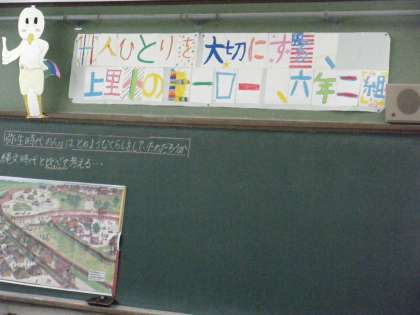 一人ひとりを大切にする、
上里小のヒーロー、六年二組
弥生時代の人々はどのようなくらしをしていたのだろうか
縄文時代と比べて考える…